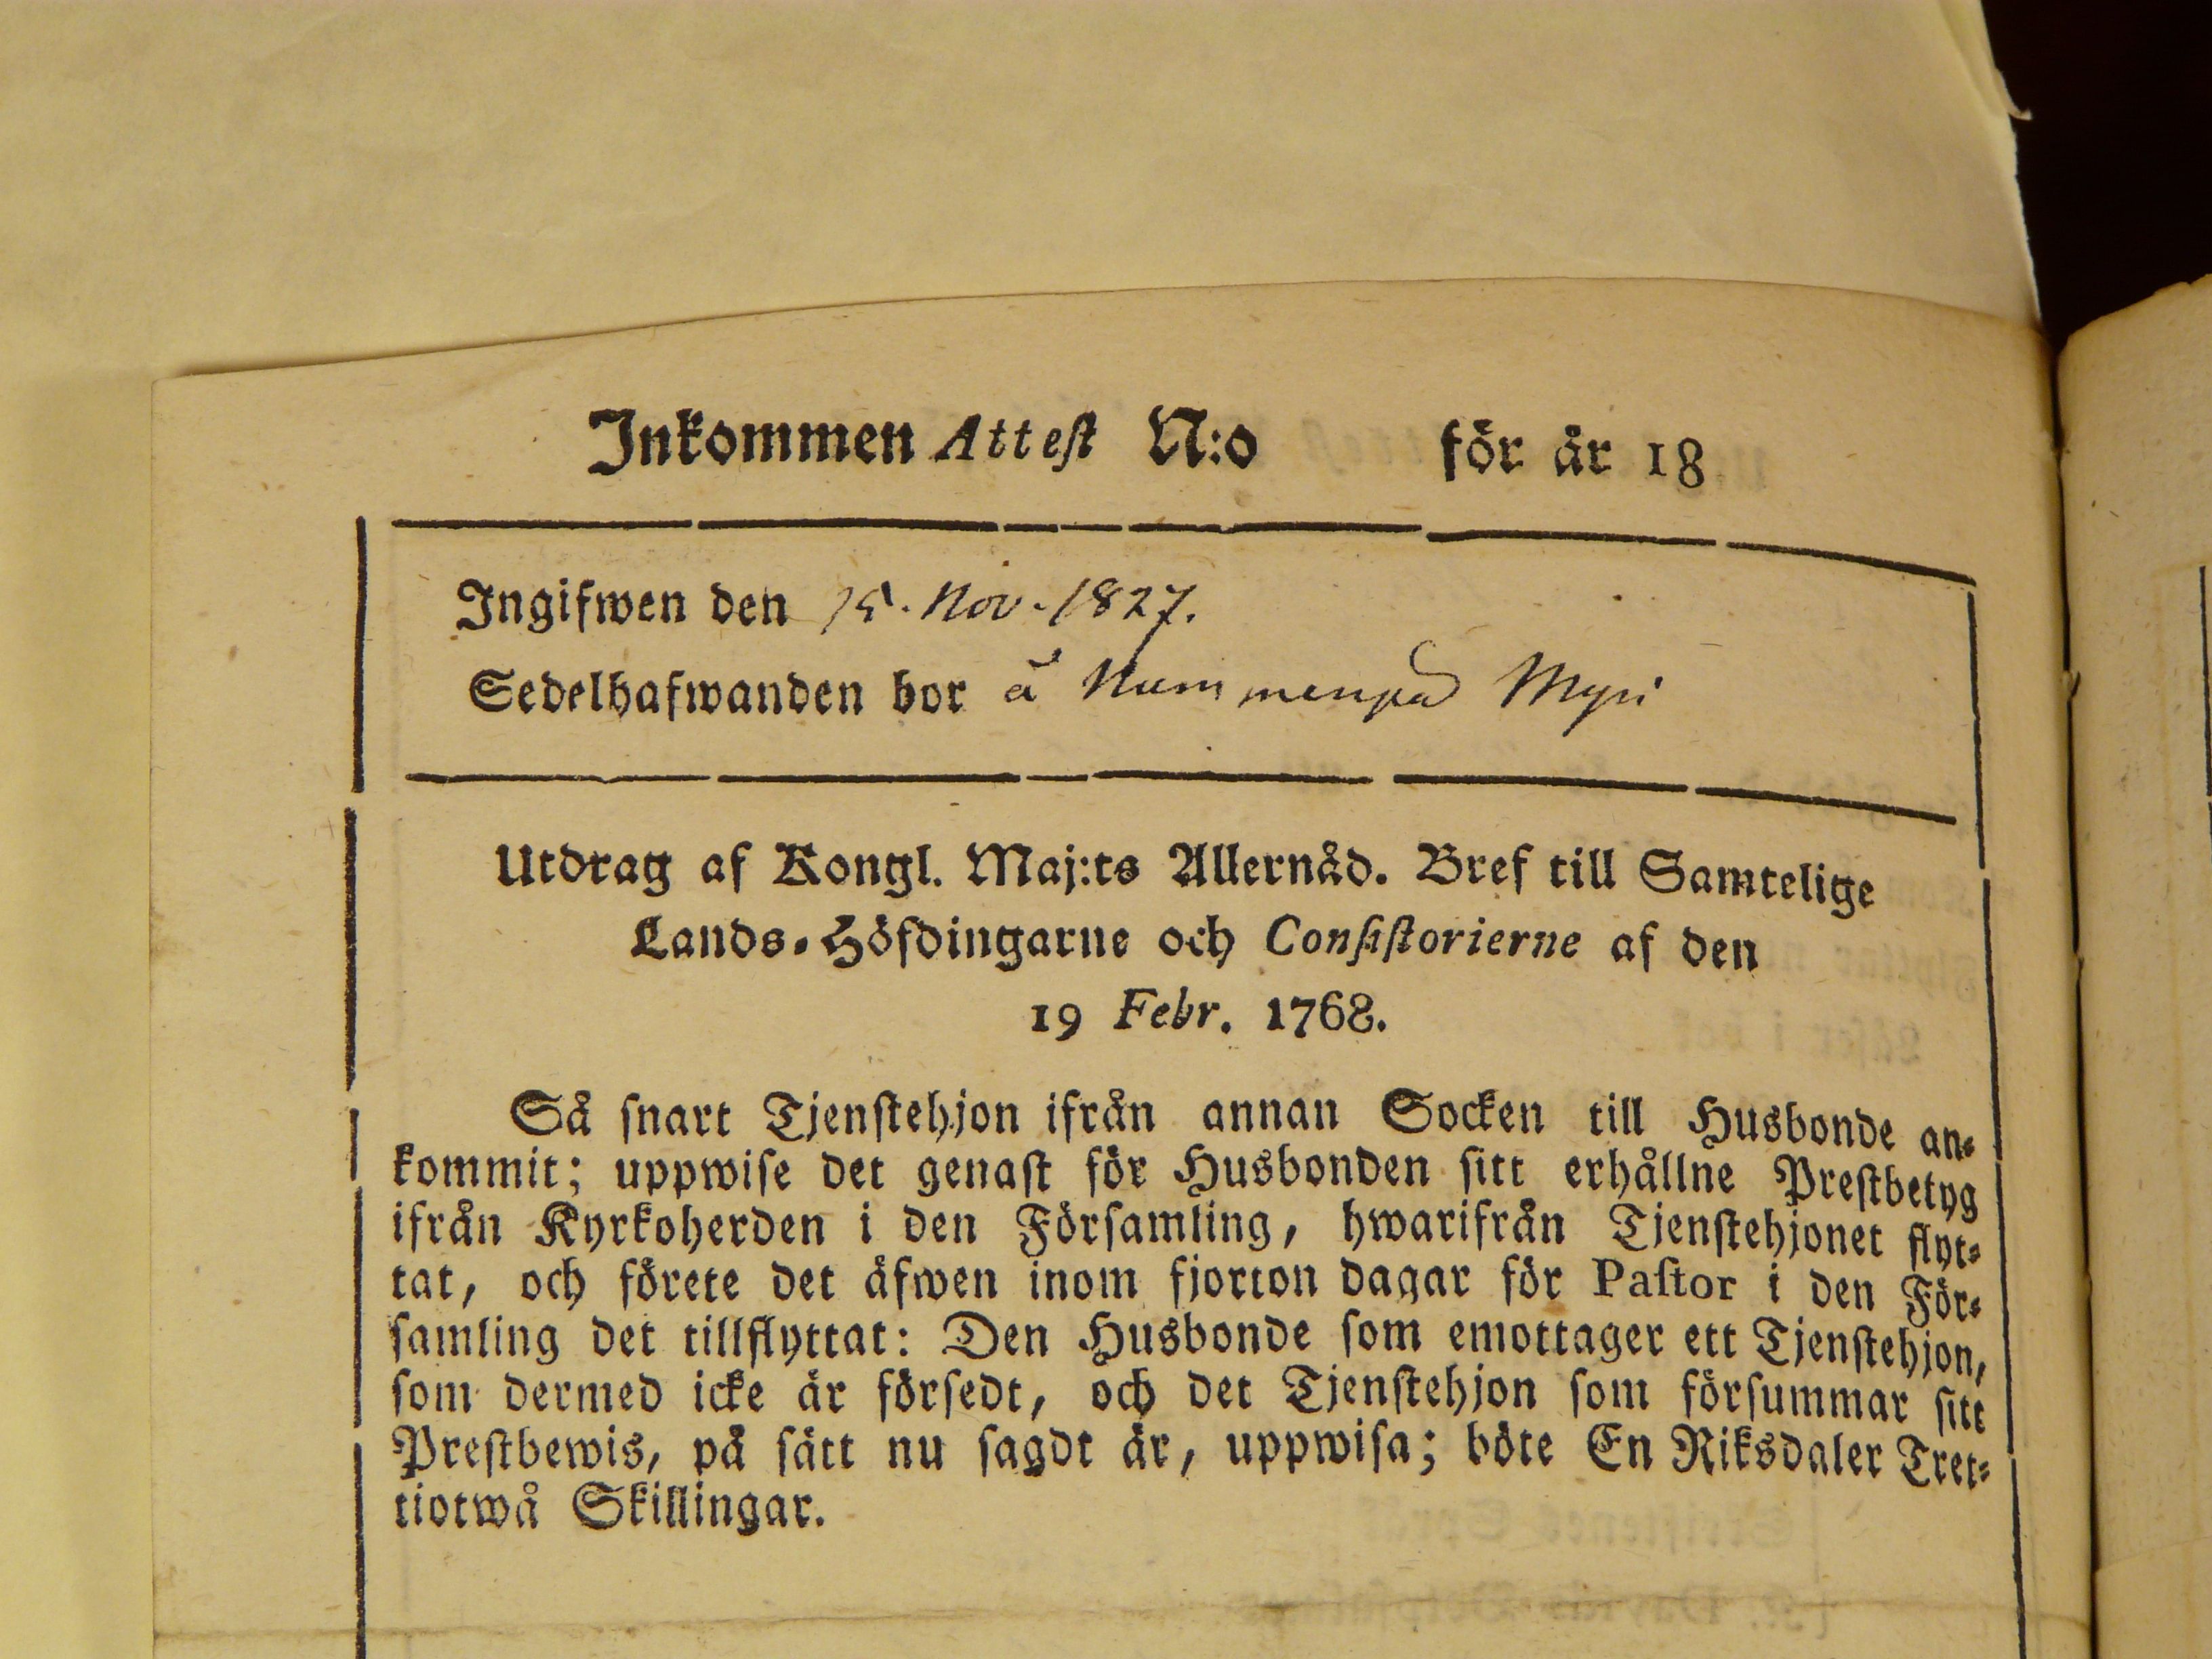 Inkommen Attest N:o för år 18
Ingifwen den 15. Nov. 1827.
Sedelhafwanden bor å Nummenpää Myri
Utdrag af Kongl. Maj:ts Allernåd. Bref till Samtelige
Lands-Höfdingarne och Consistorierne af den
19 Febr. 1768.
Så snart Tjenstehjon ifrån annan Socken till Husbonde an-
kommit; uppwise det genast för Husbonden sitt erhållne Prestbetyg
ifrån Kyrkoherden i den Församling, hwarifrån Tjenstehjonet flyt-
tat, och förete det äfwen inom fjorton dagar för Pastor i den För-
samling det tillflyttat: Den Husbonde som emottager ett Tjenstehjon,
som dermed icke är försedt, och det Tjenstehjon som försummar sitt
Prestbewis, på sätt nu sagdt är, uppwisa; böte En Riksdaler Tret-
tiotwå Skillingar.